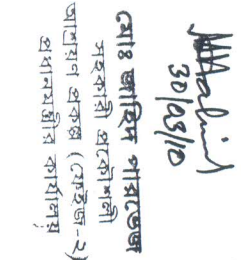 30/03/10
মোঃ জাহিদ পারভেজ
সহকারী প্রকৌশলী
আশ্রয়ন প্রকল্প (ফেইজ-২)
প্রধানমন্ত্রীর কার্যালয়